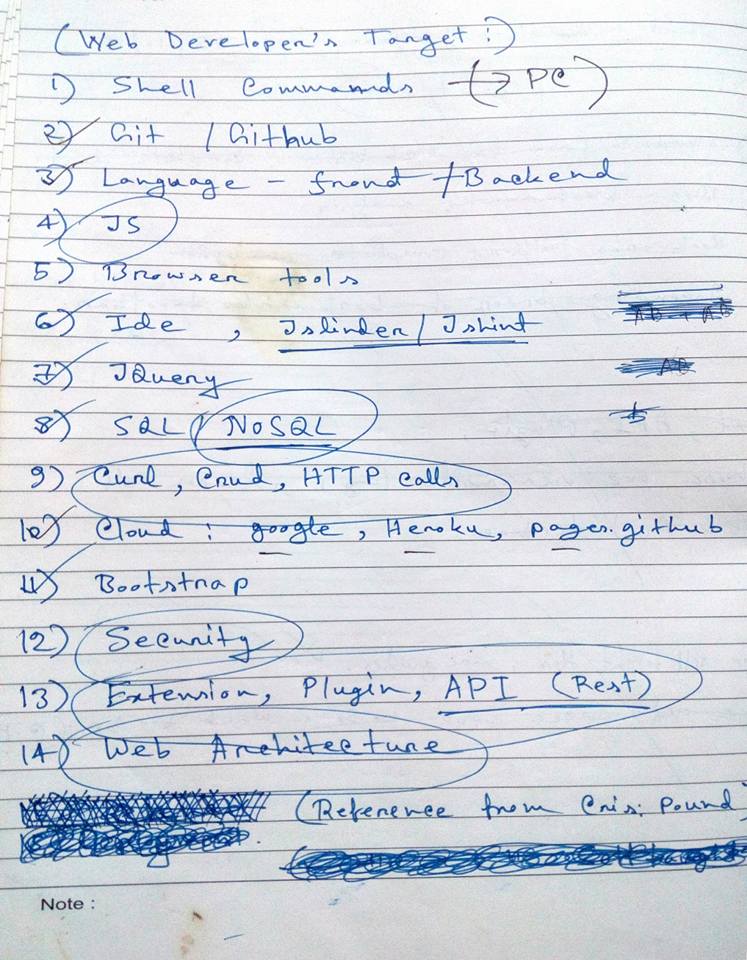 (Web Developer's Target:)
1) Shell Commands → (→ PC)
2) Git / Github
3) Language - front / Backend
4) JS
5) Browser tools
6) Ide , Jslinder / Jshint
7) JQuery
8) SQL / NoSQL
9) Curl, Crud, HTTP calls
10) Cloud : google, Heroku, pages.github
11) Bootstrap
12) Security
13) Extension, Plugin, API (Rest)
14) Web Architecture
(Reference from Cris: Pound)
Note :